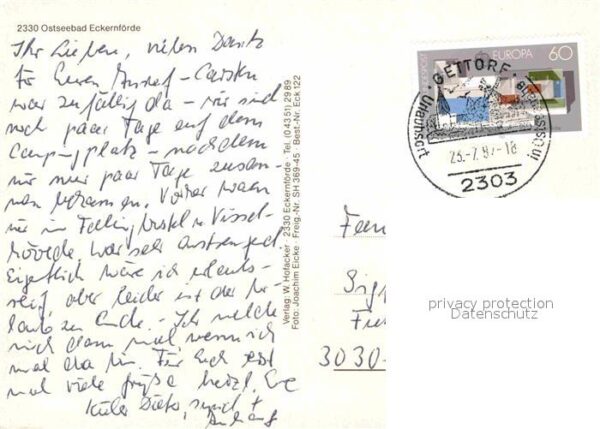 2330 Ostseebad Eckernförde
Ihr Lieben, vielen Dank
für Euren Anruf - Carsten
war zufällig da - wir sind
noch paar Tage auf dem
Campingplatz - nachdem
wir nur paar Tage zusam-
men bekamen. Vorher waren
wir in Fallingbostel u. Vissel-
hövede, war sehr anstrengend.
Eigentlich wäre ich urlaubs-
reif, aber leider ist der Ur-
laub zu Ende. - Ich melde
mich dann mal wenn ich
mal da bin. Für Euch erst
mal viele Grüße herzl. Eure
Dieter,
Verlag: W. Hofacker · 2330 Eckernförde · Tel. (04351) 2989
Foto: Joachim Eicke · Freig.-Nr. SH 389-45 · Best.-Nr. Eck 122
EUROPA 60
GETTORF
Urlaubsort
23.-7.87-18
2303
Fam
3030-
privacy protection
Datenschutz